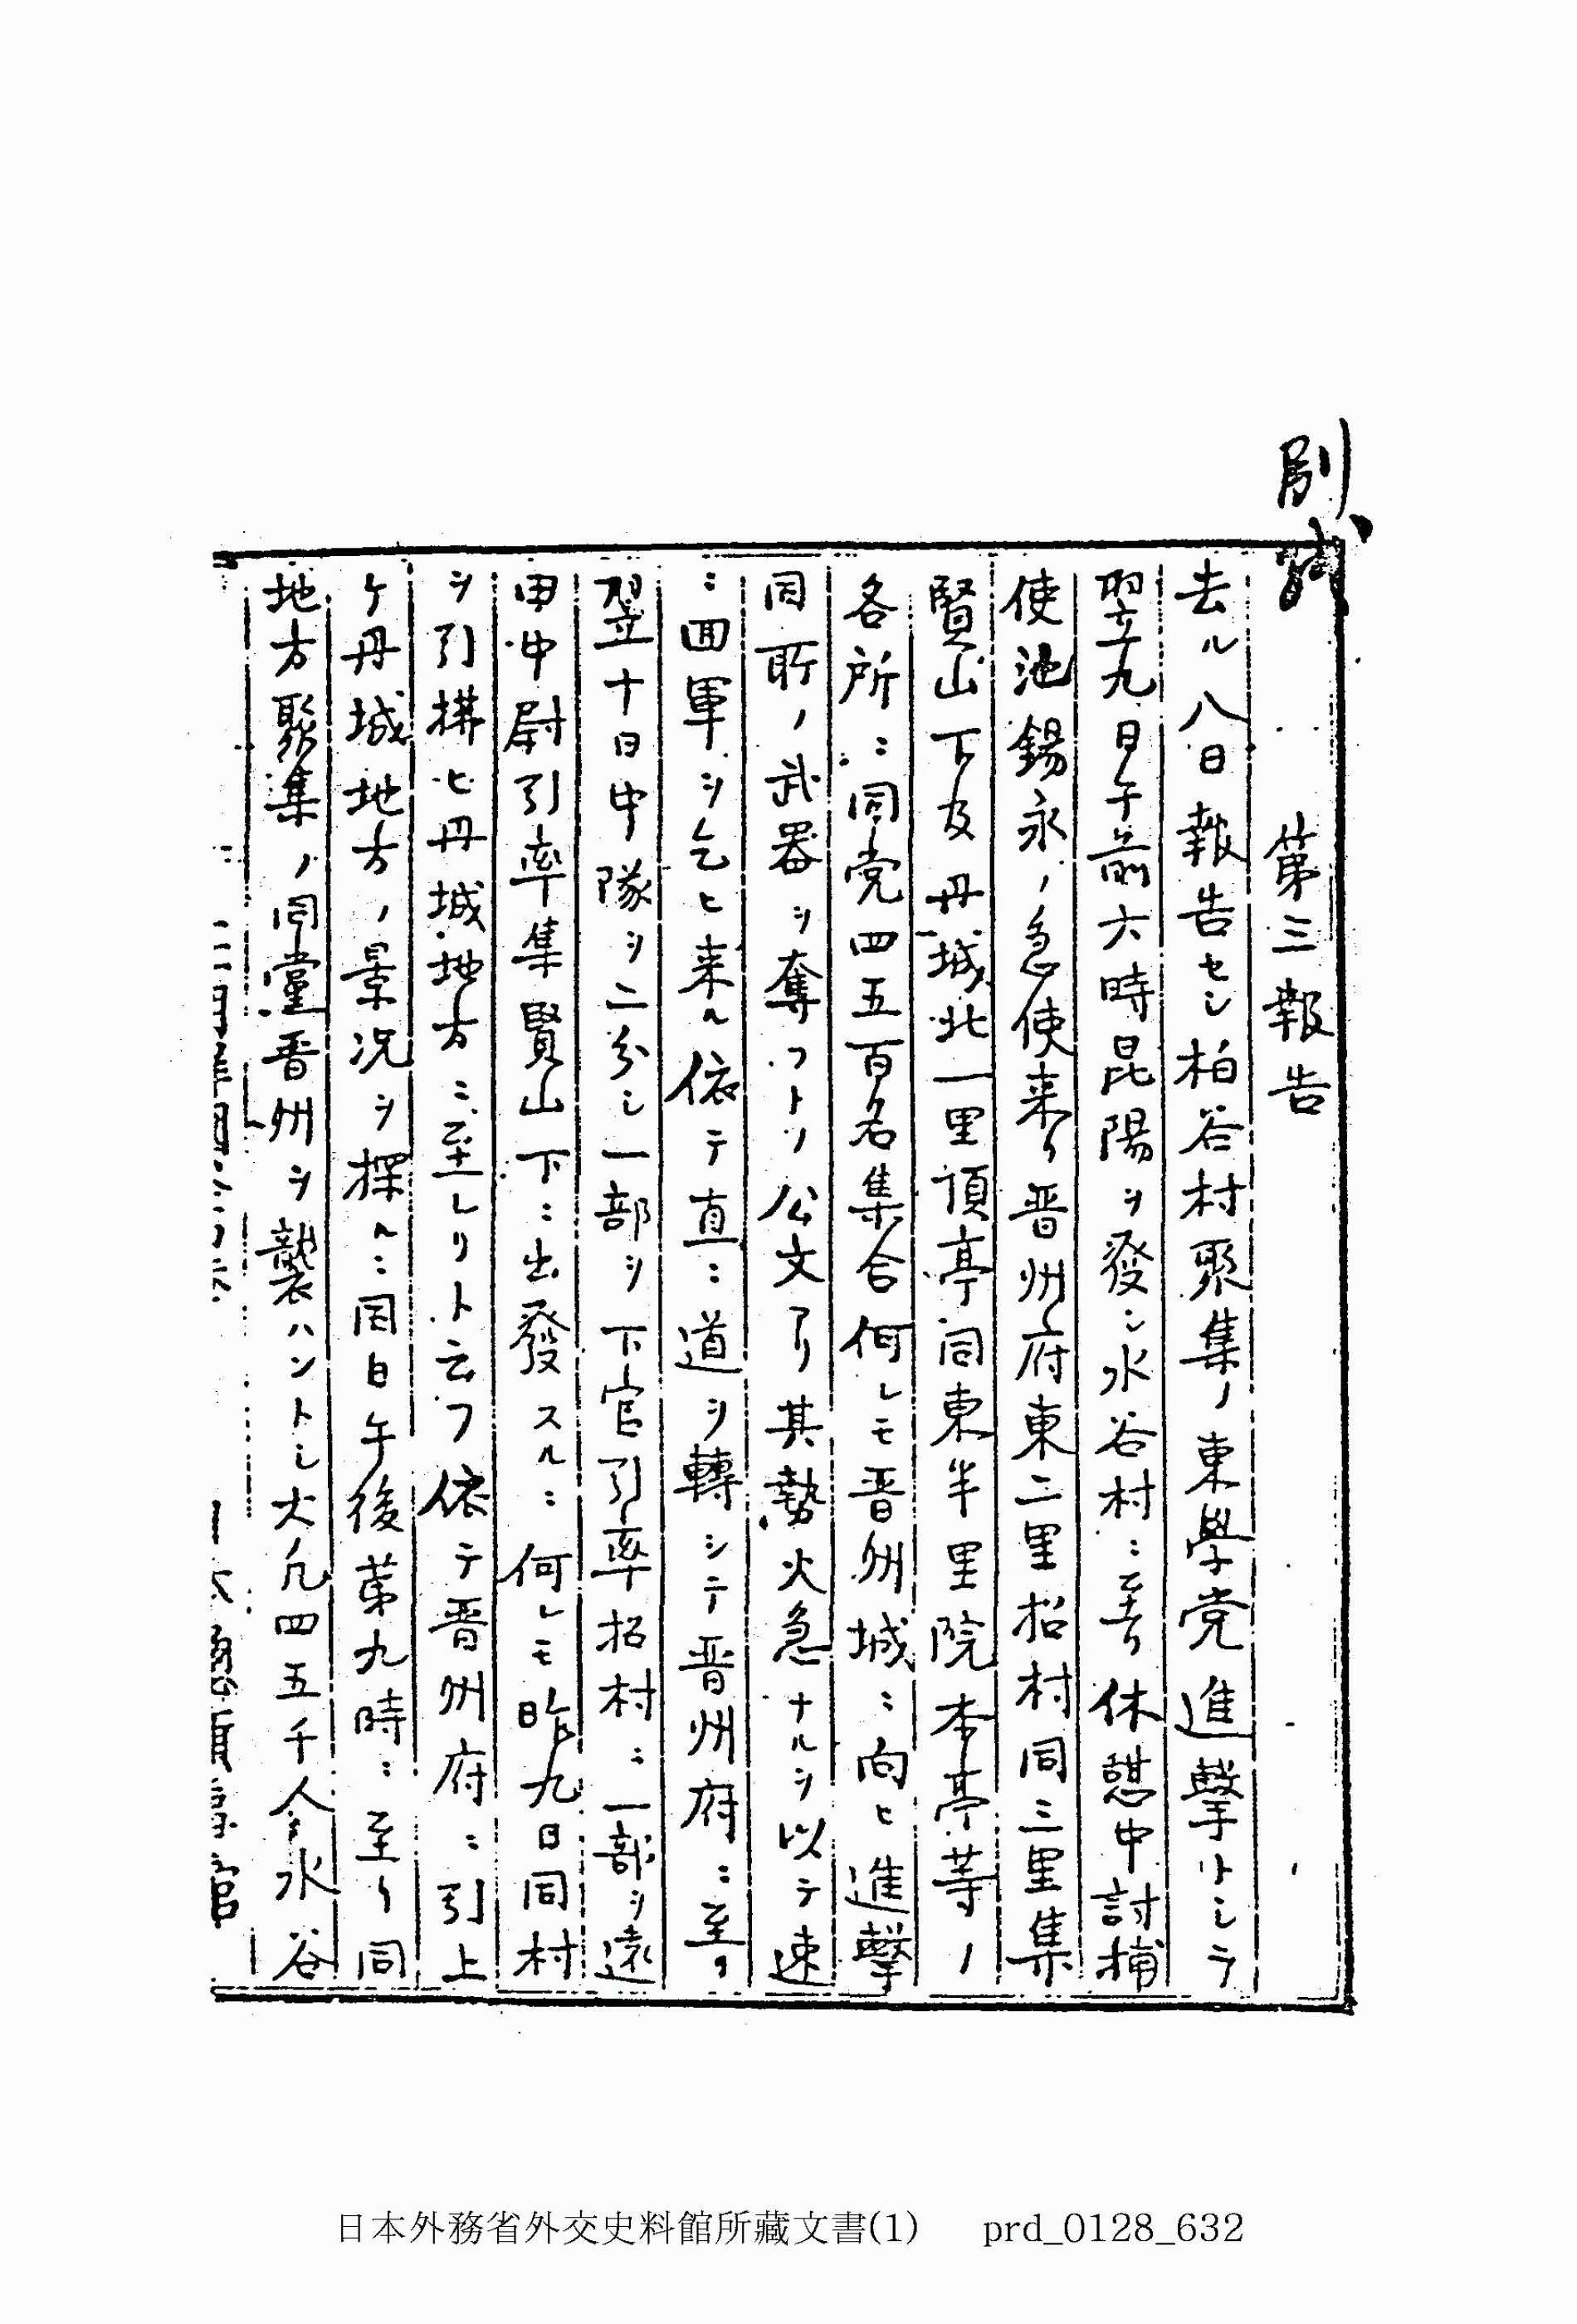 別紙
第三報告
去ル八日報告セシ柏谷村聚集ノ東學党進擊トシテ
翌九日午前六時昆陽ヲ發シ水谷村ニ至リ休憩中討捕
使池錫永ノ急使来リ晋州府東二里招村同三里集
賢山下及丹城北一里頂亭同東半里院本亭等ノ
各所ニ同党四五百名集合何レモ晋州城ニ向ヒ進擊
同所ノ武器ヲ奪フトノ公文アリ其勢火急ナルヲ以テ速
ニ回軍ヲ乞ヒ来ル依テ直ニ道ヲ轉シテ晋州府ニ至リ
翌十日中隊ヲ二分シ一部ヲ下官引率招村ニ一部ヲ遠
田中尉引率集賢山下ニ出發スルニ何レモ昨九日同村
ヲ引拂ヒ丹城地方ニ至レリト云フ依テ晋州府ニ引上
ケ丹城地方ノ景况ヲ探ルニ同日午後第九時ニ至リ同
地方聚集ノ同黨晋州ヲ襲ハントシ大凡四五千今水谷
日本外務省外交史料館所藏文書(1) prd_0128_632